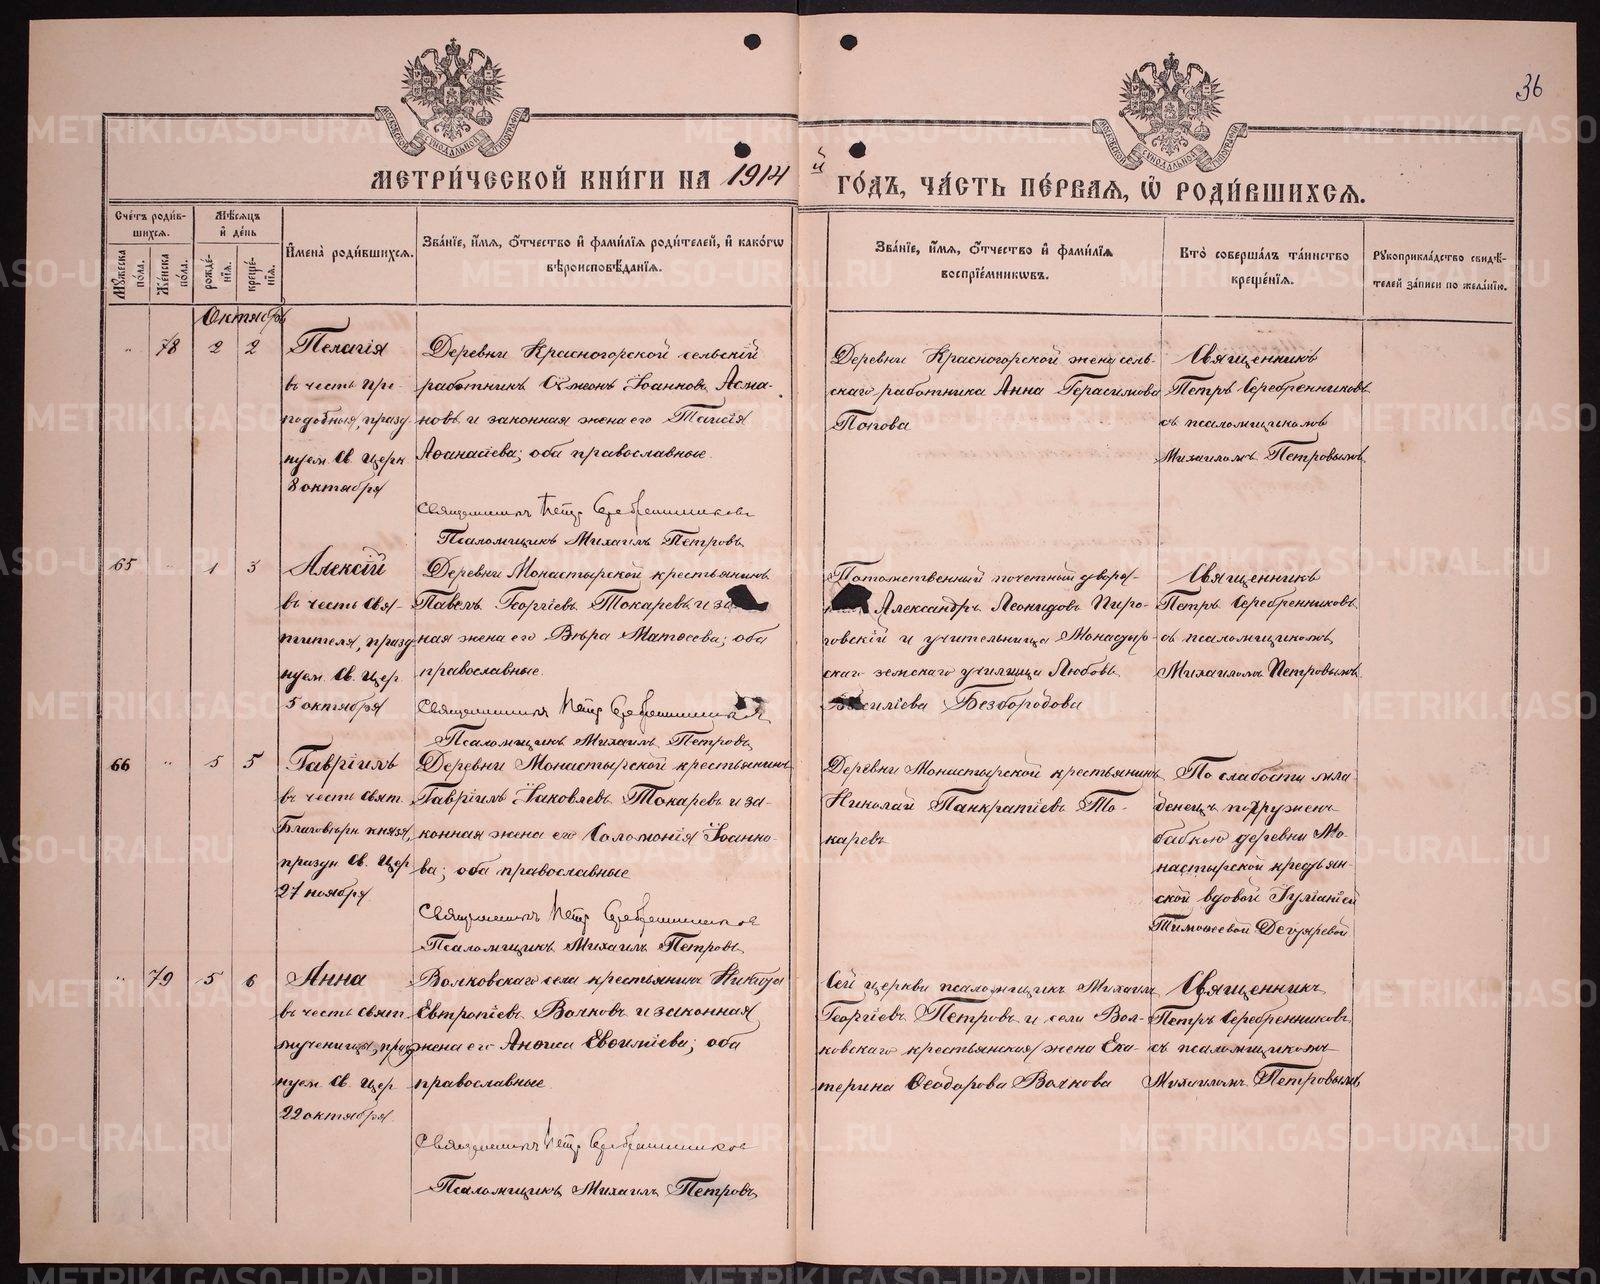 36
МЕТРИ́ЧЕСКОЙ КНИ́ГИ НА 1914 й ГО́ДЪ, ЧА́СТЬ ПЕ́РВАЯ, Ѡ҆ РОДИ́ВШИХСЯ.
Сче́тъ роди́в-
шихся.
Мꙋ́жеска по́ла.
Же́нска по́ла.
Мѣ́сяцъ
и҆ де́нь
рожде́-
нїя.
креще́-
нїя.
И҆мена̀ роди́вшихся.
Зва́нїе, и҆́мя, ѻ҆́тчество и҆ фами́лїя роди́телей, и҆ како́гѡ
вѣроисповѣ́данїя.
Зва́нїе, и҆́мя, ѻ҆́тчество и҆ фами́лїя
воспрїе́мниковъ.
Кто̀ соверша́лъ та́инство
креще́нїя.
Рукоприкла́дство свидѣ́-
телей за́писи по жела́нїю.
Октябрь
" 78 2 2
Пелагія
въ честь пре-
подобныя, празд-
нуем. Св. Церк.
8 октября
Деревни Красногорской сельскій
работникъ Сѵмеонъ Іоанновъ Асма-
новъ и законная жена его Таисія
Аѳанасіева; оба православные.
Священникъ Петръ Серебренниковъ
Псаломщикъ Михаилъ Петровъ
Деревни Красногорской жена сель-
скаго работника Анна Герасимова
Попова
Священникъ
Петръ Серебренниковъ
съ псаломщикомъ
Михаиломъ Петровымъ
65 " 1 3
Алексій
въ честь Свя-
тителя, празд-
нуем. Св. Цер.
5 октября
Деревни Монастырской крестьянинъ
Павелъ Георгіевъ Токаревъ и за
ная жена его Вѣра Матѳеева; оба
православные.
Священникъ Петръ Серебренниковъ
Псаломщикъ Михаилъ Петровъ
Потомственный почетный дворя-
Александръ Леонидовъ Пиро-
говскій и учительница Монастыр-
скаго земскаго училища Любовь
Василіева Безбородова
Священникъ
Петръ Серебренниковъ
съ псаломщикомъ
Михаиломъ Петровымъ
66 " 5 5
Гавріилъ
въ честь свят.
Благовѣрн. князя,
праздн. Св. Цер.
27 ноября
Деревни Монастырской крестьянинъ
Гавріилъ Іаковлевъ Токаревъ и за-
конная жена его Соломонія Іоанно-
ва; оба православные
Священникъ Петръ Серебренниковъ
Псаломщикъ Михаилъ Петровъ
Деревни Монастырской крестьянинъ
Николай Панкратіевъ То-
каревъ
По слабости мла-
денецъ погруженъ
бабкою деревни Мо-
настырской крестьян-
ской вдовой Іуліаніей
Тимоѳеевой Дегтяревой
" 79 5 6
Анна
въ честь свят.
мученицы, празд-
нуем. Св. Цер.
22 октября
Волковскаго села крестьянинъ Никита
Евтропіевъ Волковъ и законная
жена его Анѳиса Евѳиміева; оба
православные
Священникъ Петръ Серебренниковъ
Псаломщикъ Михаилъ Петровъ
Сей церкви псаломщикъ Михаилъ
Георгіевъ Петровъ и села Вол-
ковскаго крестьянская жена Ека-
терина Ѳеодорова Волкова
Священникъ
Петръ Серебренниковъ
съ псаломщикомъ
Михаиломъ Петровымъ
METRIKI.GASO-URAL.RU